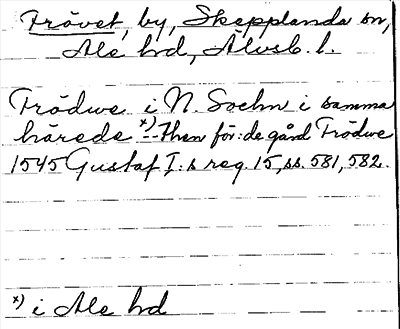 Trövet, by, Skepplanda sn,
Ale hd, Älvsb. l.
Trödwe i N. Sochn i samma
härede x) -- Then för:de gård Trödwe
1545 Gustaf I:s reg. 15, ss. 581, 582.
x) i Ale hd